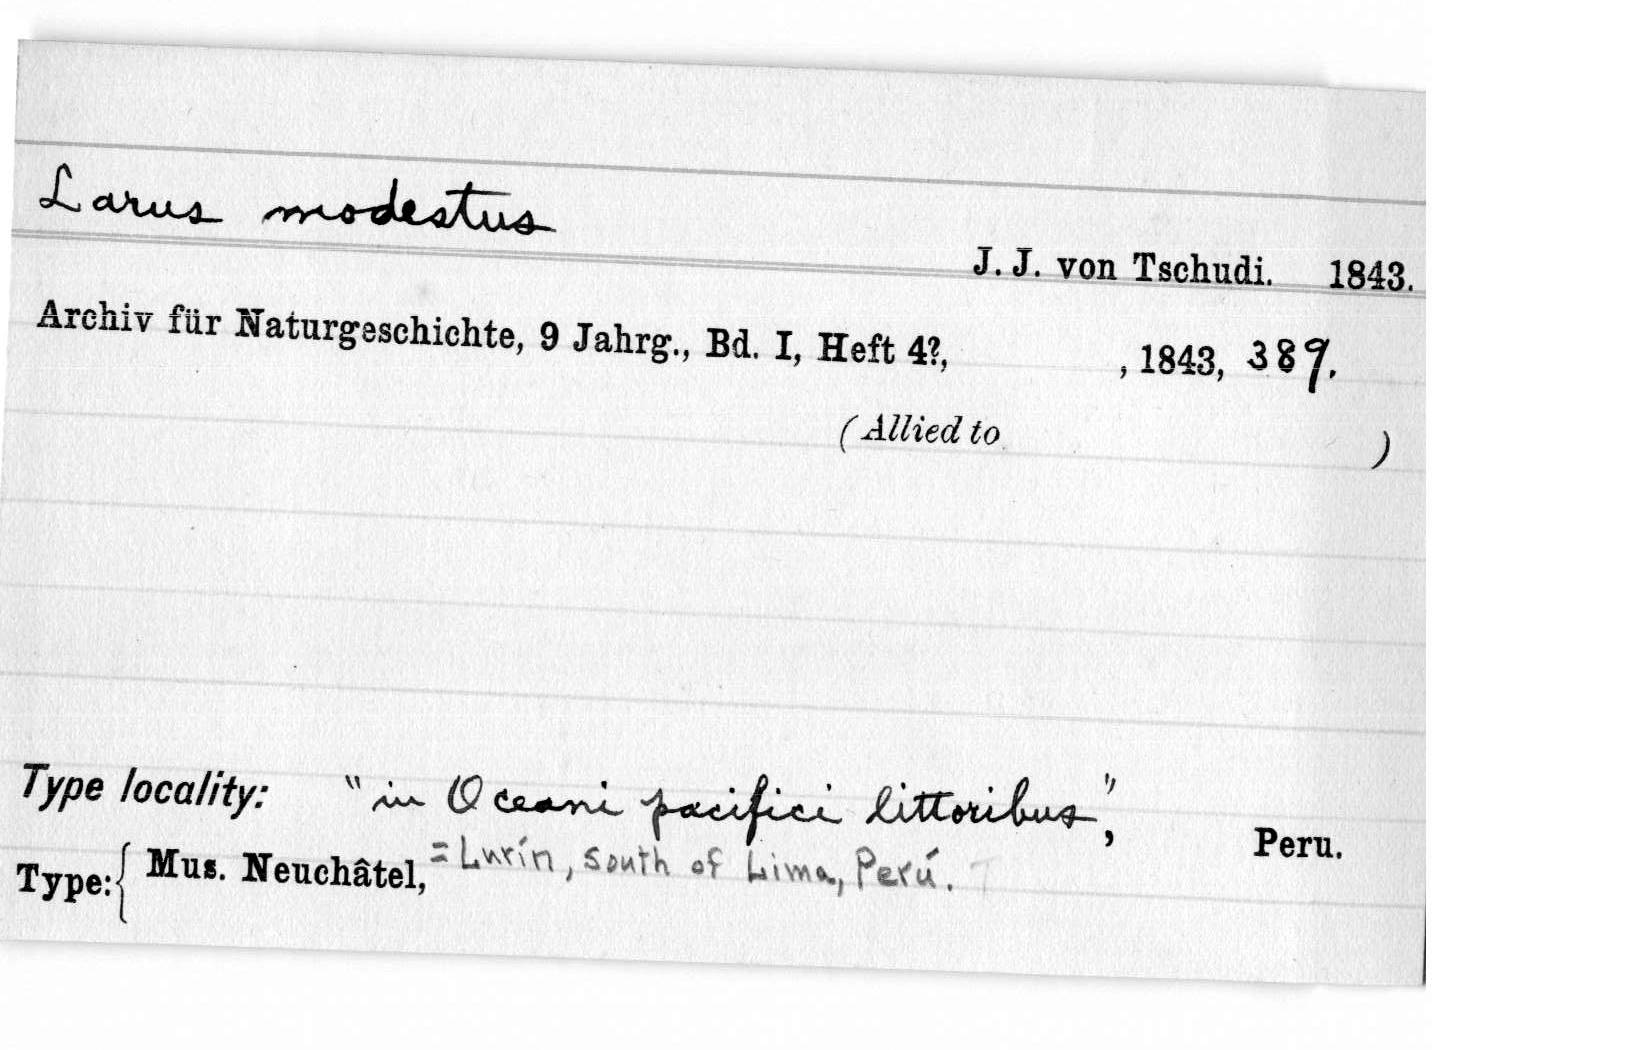 Larus modestus
J. J. von Tschudi. 1843.
Archiv für Naturgeschichte, 9 Jahrg., Bd. I, Heft 4?, , 1843, 389.
(Allied to )
Type locality: "in Oceani pacifici littoribus", Peru.
= Lurín, south of Lima, Perú.
Type: { Mus. Neuchâtel,